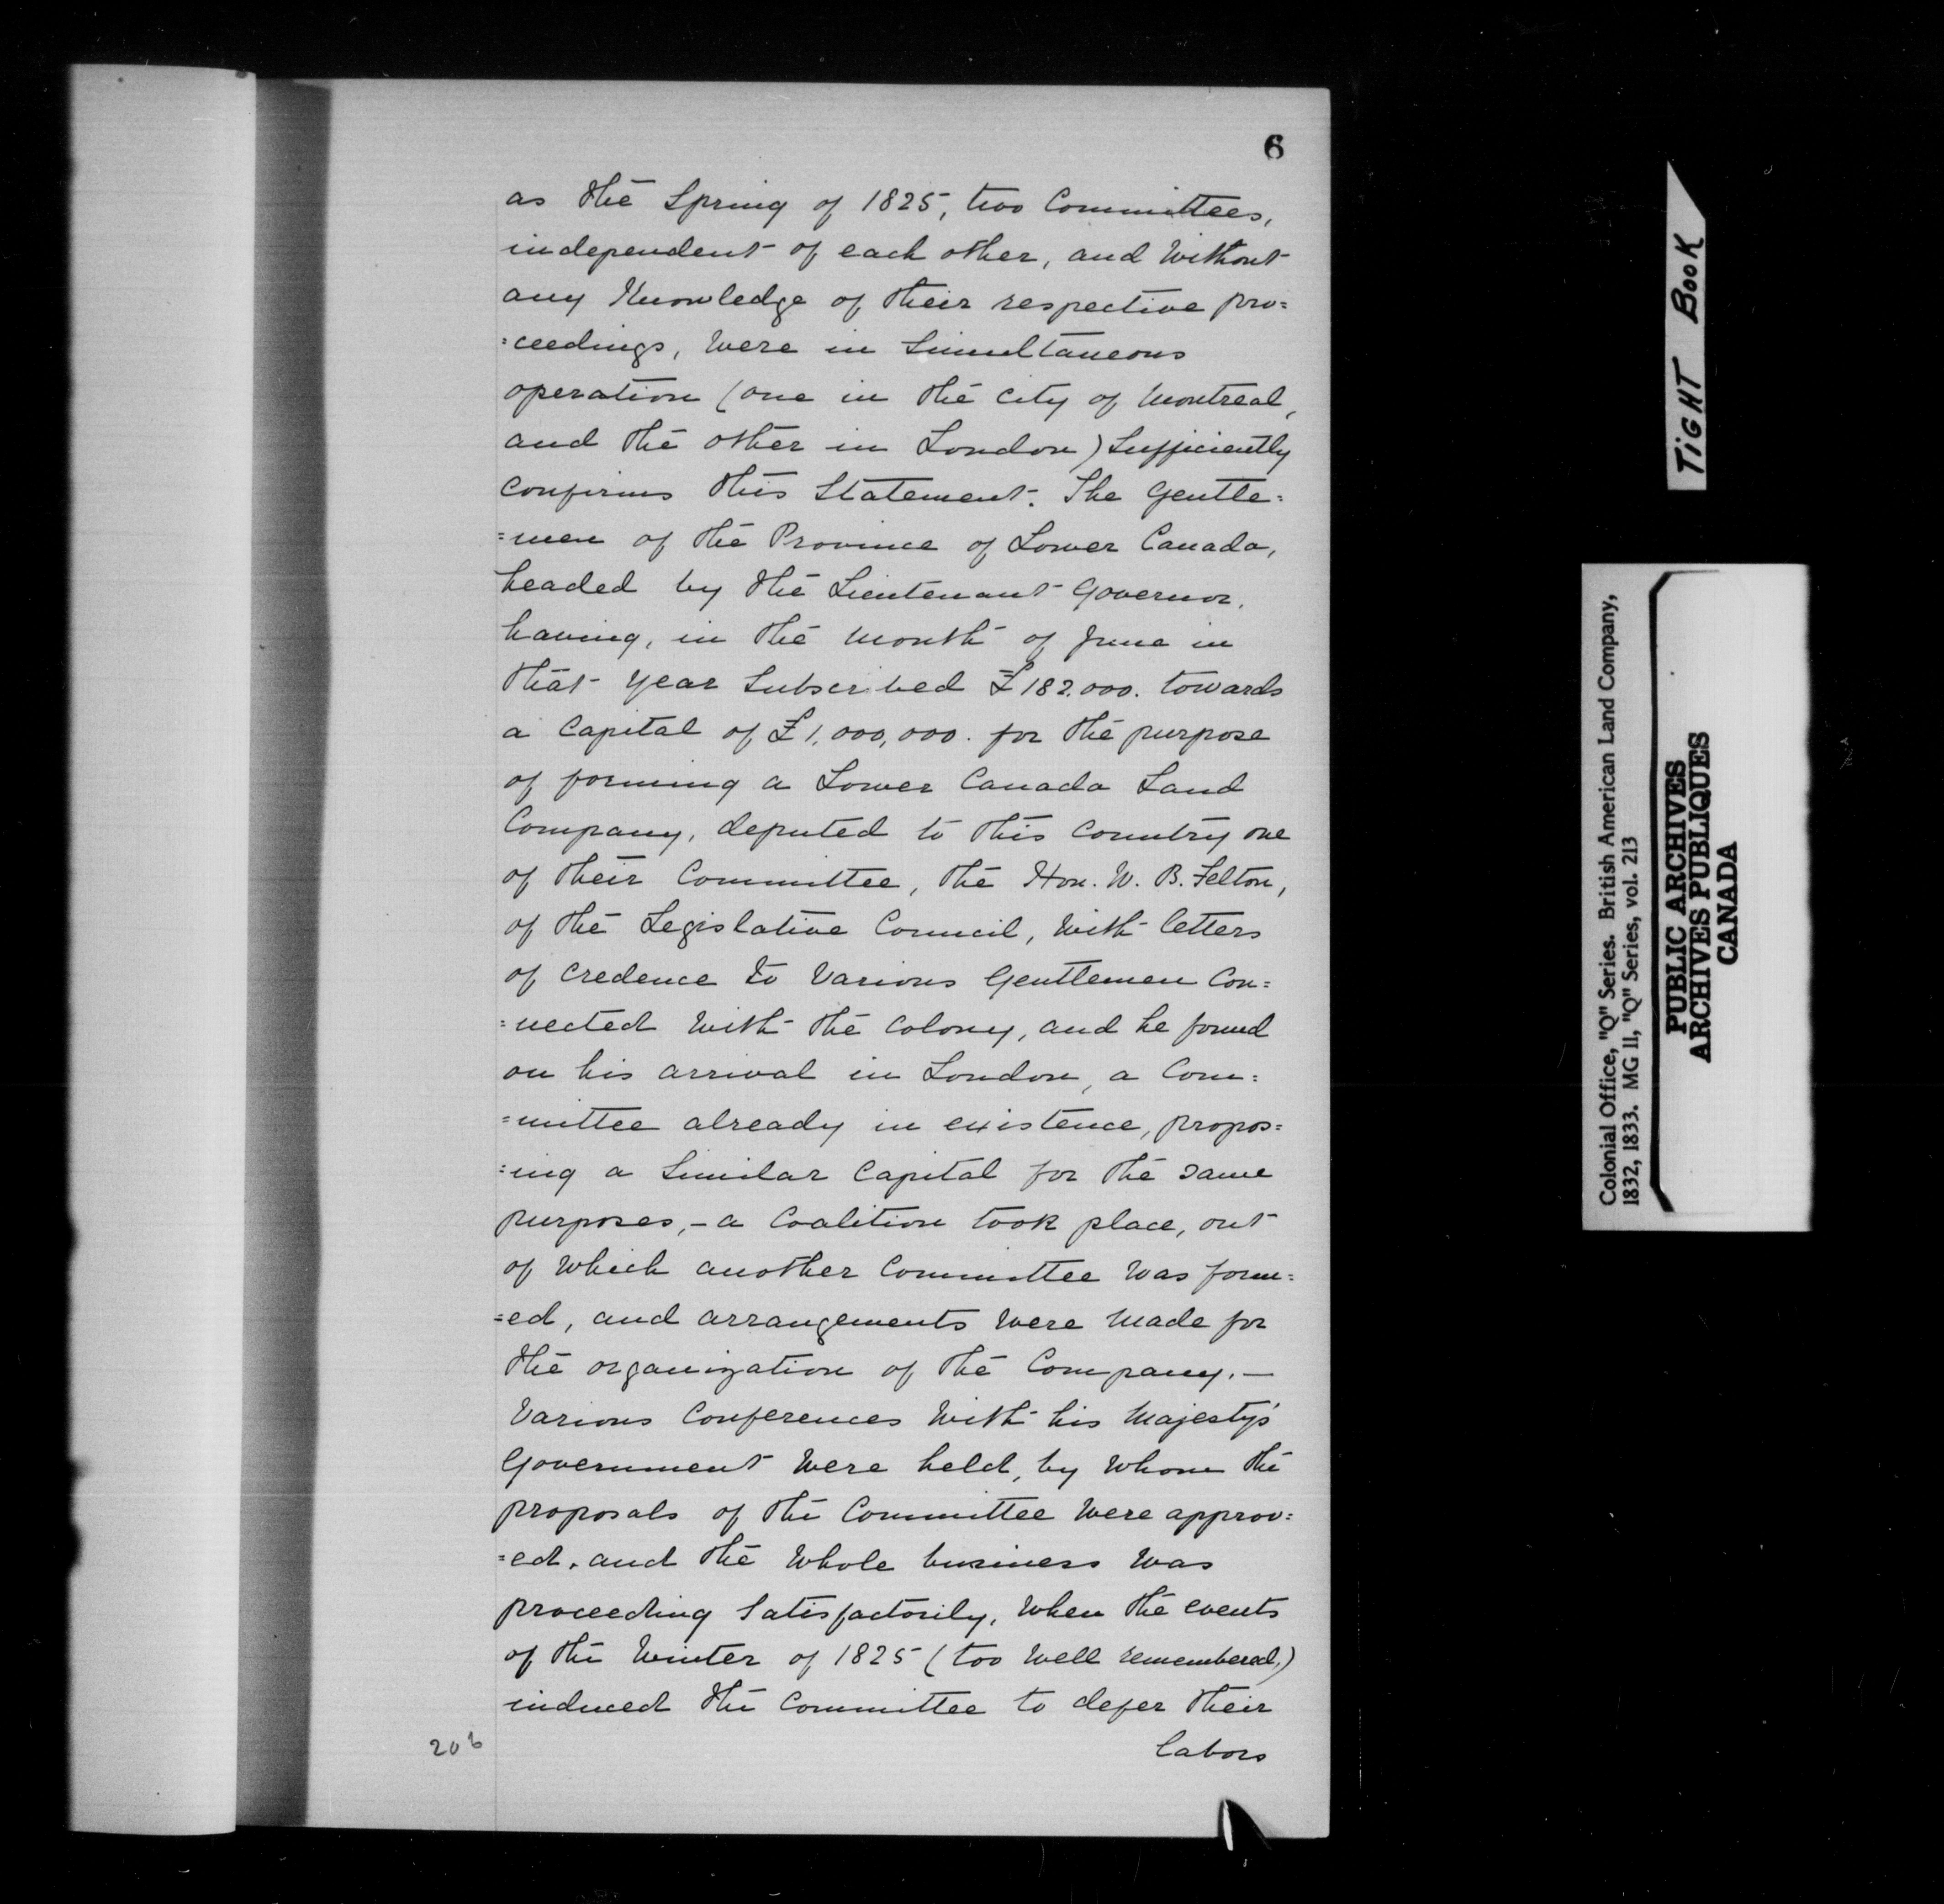 6
as the Spring of 1825, two Committees,
independent of each other, and Without
any Knowledge of their respective pro=
=ceedings, Were in Simultaneous
operation (one in the City of Montreal,
and the other in London) Sufficiently
Confirms this Statement. The Gentle=
=men of the Province of Lower Canada,
headed by the Lieutenant Governor,
having, in the Month of June in
that Year Subscribed £182.000. towards
a Capital of £1,000,000. for the purpose
of forming a Lower Canada Land
Company, deputed to this Country one
of their Committee, the Hon. W. B. Felton,
of the Legislative Council, With letters
of Credence to Various Gentlemen Con=
=nected With the Colony, and he found
on his arrival in London, a Com=
=mittee already in existence, propos=
=ing a Similar Capital for the same
purposes,- a Coalition took place, out
of Which another Committee Was form=
=ed, and arrangements Were Made for
the organization of the Company.—
Various Conferences With his Majesty's
Government Were held, by Whom the
proposals of the Committee Were approv=
=ed, and the Whole business Was
proceeding Satisfactorily, When the events
of the Winter of 1825 (too Well remembered,)
induced the Committee to defer their
labors
206
TIGHT BOOK
Colonial Office, "Q" Series. British American Land Company,
1832, 1833. MG 11, "Q" Series, vol. 213
PUBLIC ARCHIVES
ARCHIVES PUBLIQUES
CANADA